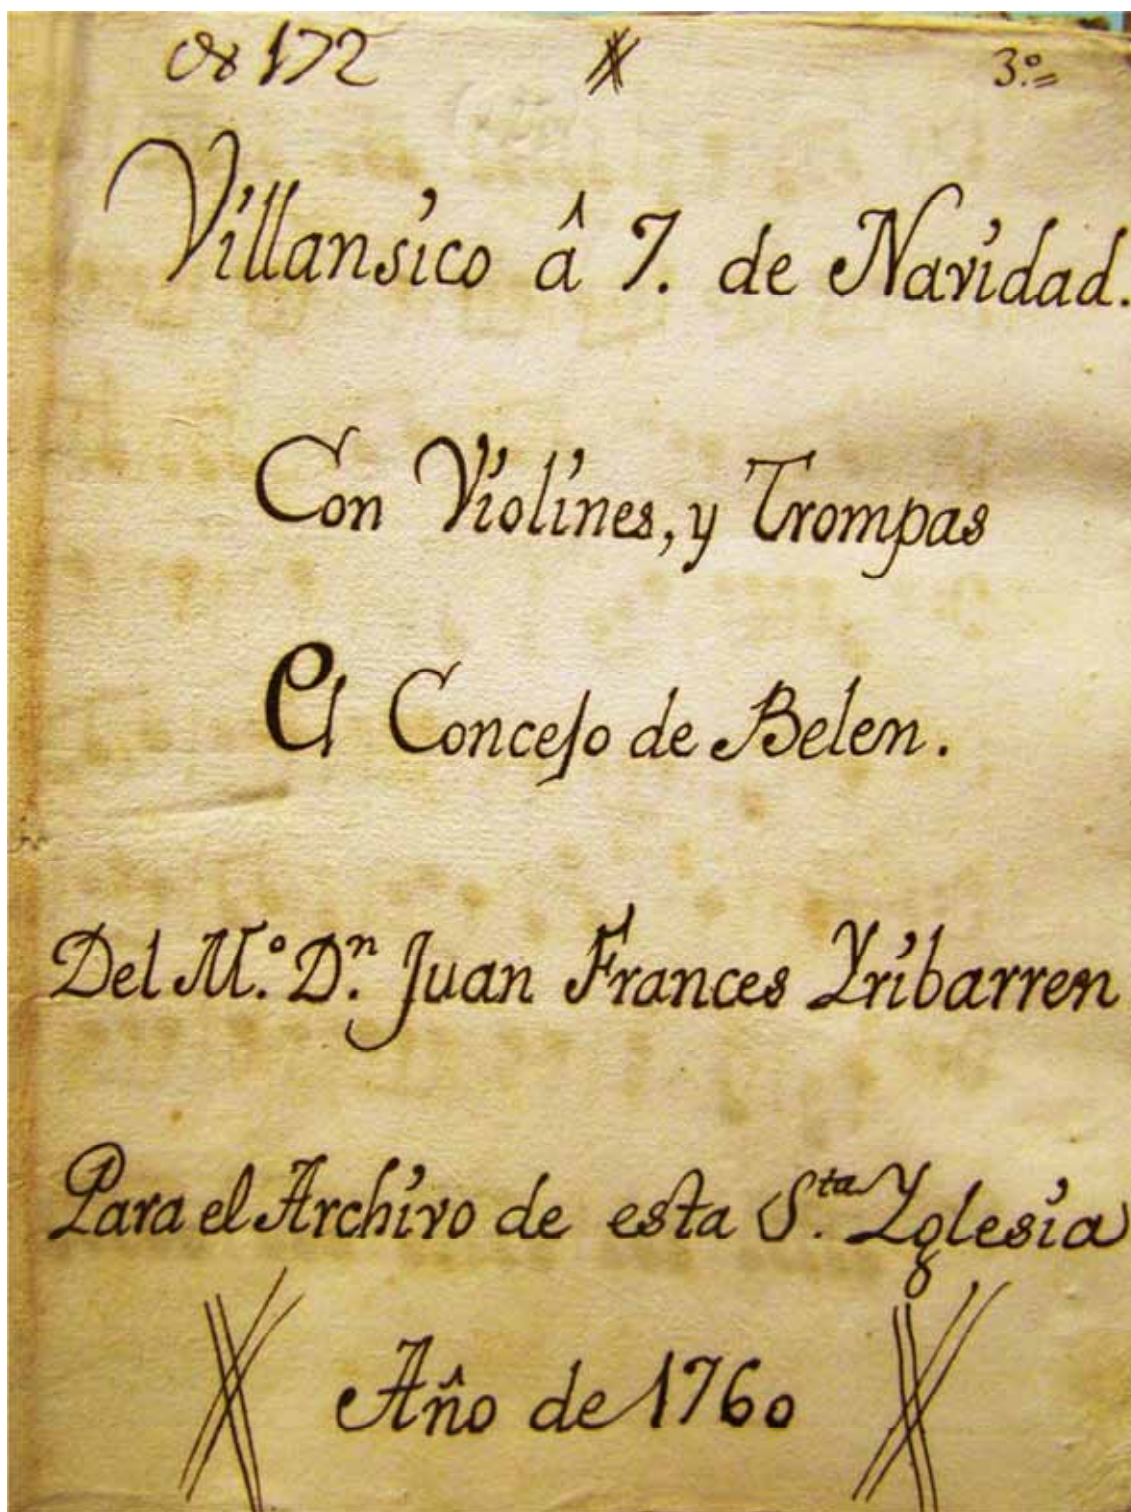 172 3.º=
Villansico â 7. de Navidad.
Con Violines, y Trompas
El Concejo de Belen.
Del M.º D.n Juan Frances Yribarren
Para el Archivo de esta S.ta Yglesia
Año de 1760